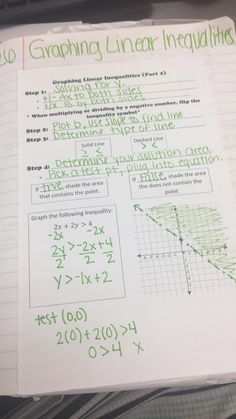 6 Graphing Linear Inequalities
Graphing Linear Inequalities (Part 2)
Step 1: Solving for y.
• +/- Ax to both sides
• ×/÷ B by both sides
• When multiplying or dividing by a negative number, flip the
inequality symbol*
Step 2: Plot b, use slope to find line
Step 3: Determine type of line
Solid Line Dashed Line
≥ ≤ > <
Step 4: Determine your solution area
• Pick a test pt, plug into equation.
If true shade the area
that contains the point.
If false shade the area
the does not contain the
point.
Graph the following Inequality:
2x + 2y > 4
-2x -2x
2y > -2x+4
2 2 2
y > -1x+2
test (0,0)
2(0)+2(0)>4
0>4 x